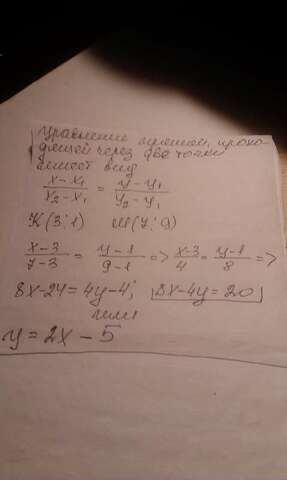 Уравнение прямой, прохо-
дящей через две точки
имеет вид
x-x₁/x₂-x₁ = y-y₁/y₂-y₁
K(3;1) M(7;9)
x-3/7-3 = y-1/9-1 => x-3/4 = y-1/8 =>
8x-24=4y-4; 8x-4y=20
или
y=2x-5